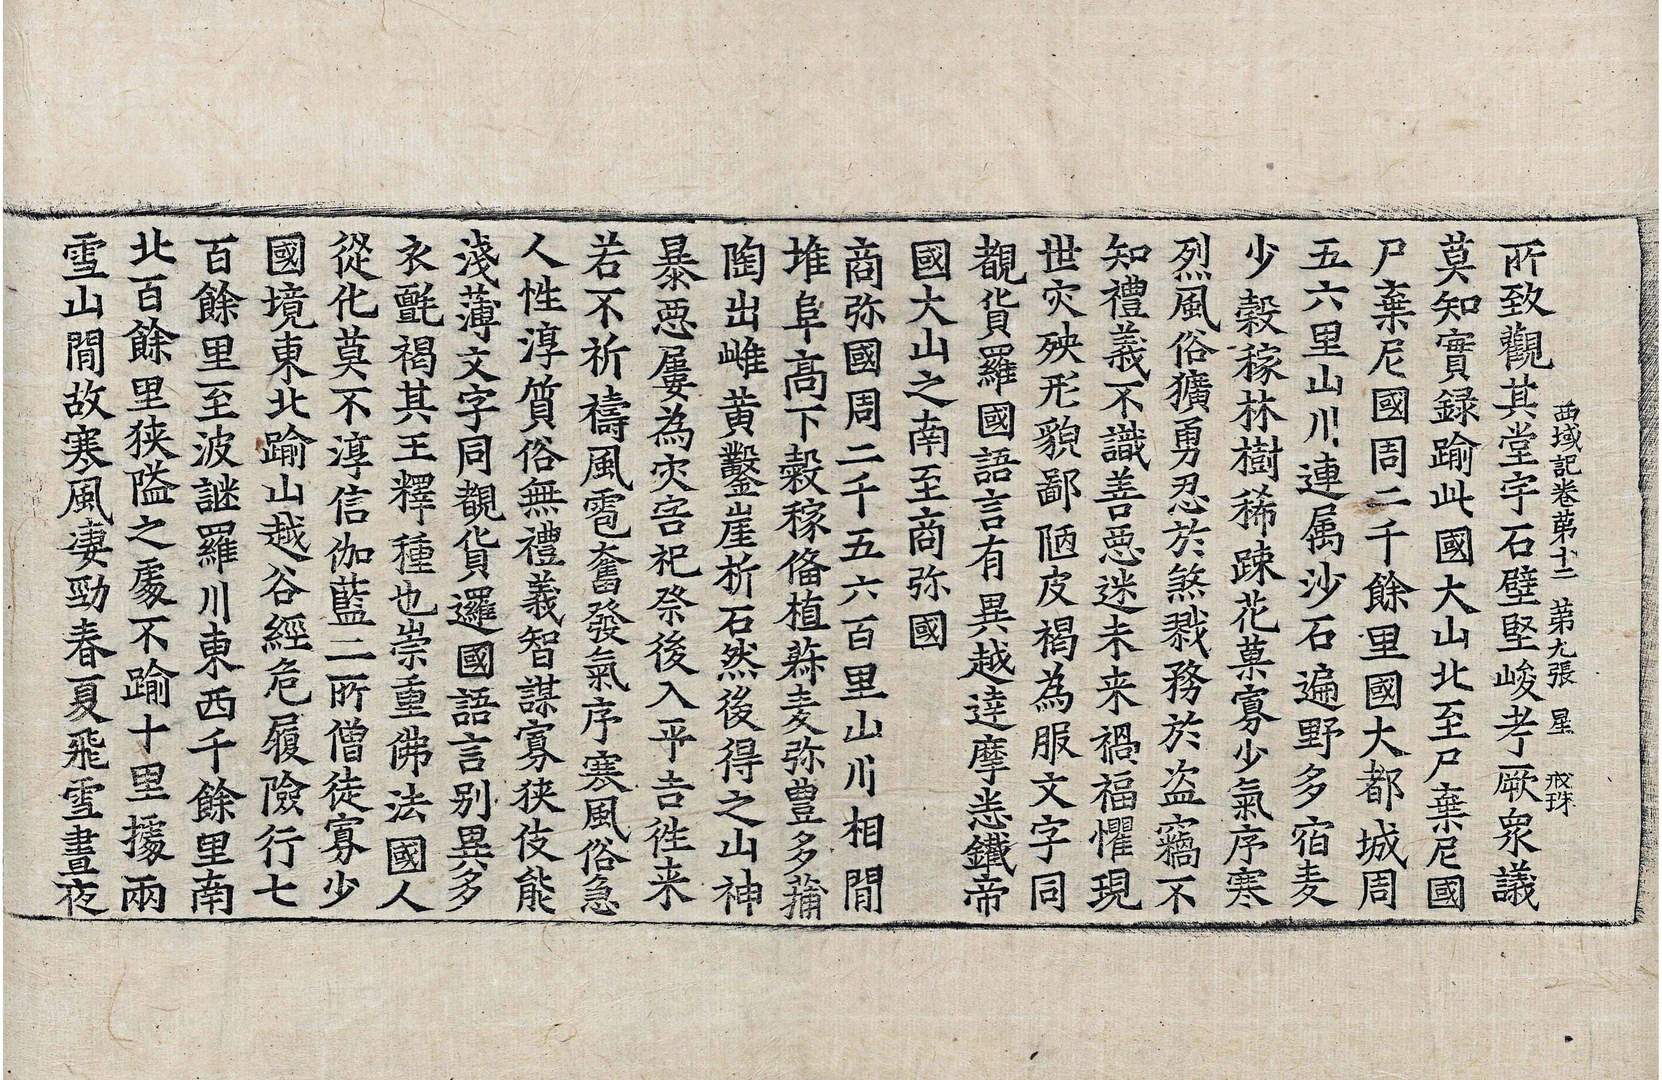 西域記卷苐十二 苐九張 星 戒珠
所致觀其堂宇石壁堅峻考厥衆議
莫知實録踰此國大山北至尸棄尼國
尸棄尼國周二千餘里國大都城周
五六里山川連属沙石遍野多宿麦
少穀稼林樹稀踈花菓寡少氣序寒
烈風俗獷勇忍於煞戮務於盗竊不
知禮義不識善惡迷未来禍福懼現
世灾殃形貌鄙陋皮褐為服文字同
覩貨羅國語言有異越達摩悉鐵帝
國大山之南至商弥國
商弥國周二千五六百里山川相閒
堆阜高下穀稼俻植菽麦弥豊多蒱
陶出雌黄鑿崖析石然後得之山神
暴惡屢為灾害祀祭後入平吉徃来
若不祈禱風雹奮發氣序寒風俗急
人性淳質俗無禮義智謀寡狹伎能
淺薄文字同覩貨邏國語言别異多
衣氎褐其王釋種也崇重佛法國人
從化莫不淳信伽藍二所僧徒寡少
國境東北踰山越谷經危履險行七
百餘里至波謎羅川東西千餘里南
北百餘里狹隘之處不踰十里據兩
雪山閒故寒風凄勁春夏飛雪晝夜